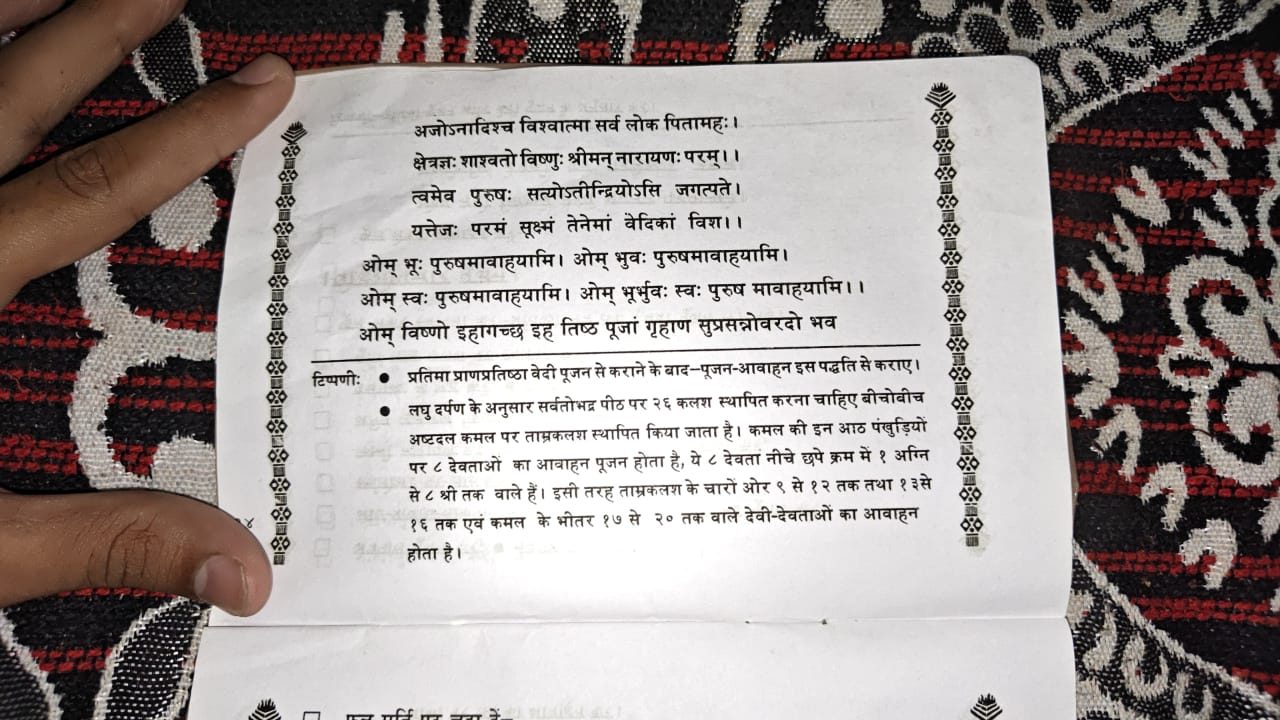 अजोऽनादिश्च विश्वात्मा सर्व लोक पितामहः।
क्षेत्रज्ञः शाश्वतो विष्णुः श्रीमन् नारायणः परम्।।
त्वमेव पुरुषः सत्योऽतीन्द्रियोऽसि जगत्पते।
यत्तेजः परमं सूक्ष्मं तेनेमां वेदिकां विश।।
ओम् भूः पुरुषमावाहयामि। ओम् भुवः पुरुषमावाहयामि।
ओम् स्वः पुरुषमावाहयामि। ओम् भूर्भुवः स्वः पुरुष मावाहयामि।।
ओम् विष्णो इहागच्छ इह तिष्ठ पूजां गृहाण सुप्रसन्नोवरदो भव
टिप्पणीः ● प्रतिमा प्राणप्रतिष्ठा वेदी पूजन से कराने के बाद–पूजन-आवाहन इस पद्धति से कराए।
● लघु दर्पण के अनुसार सर्वतोभद्र पीठ पर २६ कलश स्थापित करना चाहिए बीचोबीच
अष्टदल कमल पर ताम्रकलश स्थापित किया जाता है। कमल की इन आठ पंखुड़ियों
पर ८ देवताओं का आवाहन पूजन होता है, ये ८ देवता नीचे छपे क्रम में १ अग्नि
से ८ श्री तक वाले हैं। इसी तरह ताम्रकलश के चारों ओर ९ से १२ तक तथा १३से
१६ तक एवं कमल के भीतर १७ से २० तक वाले देवी-देवताओं का आवाहन
होता है।